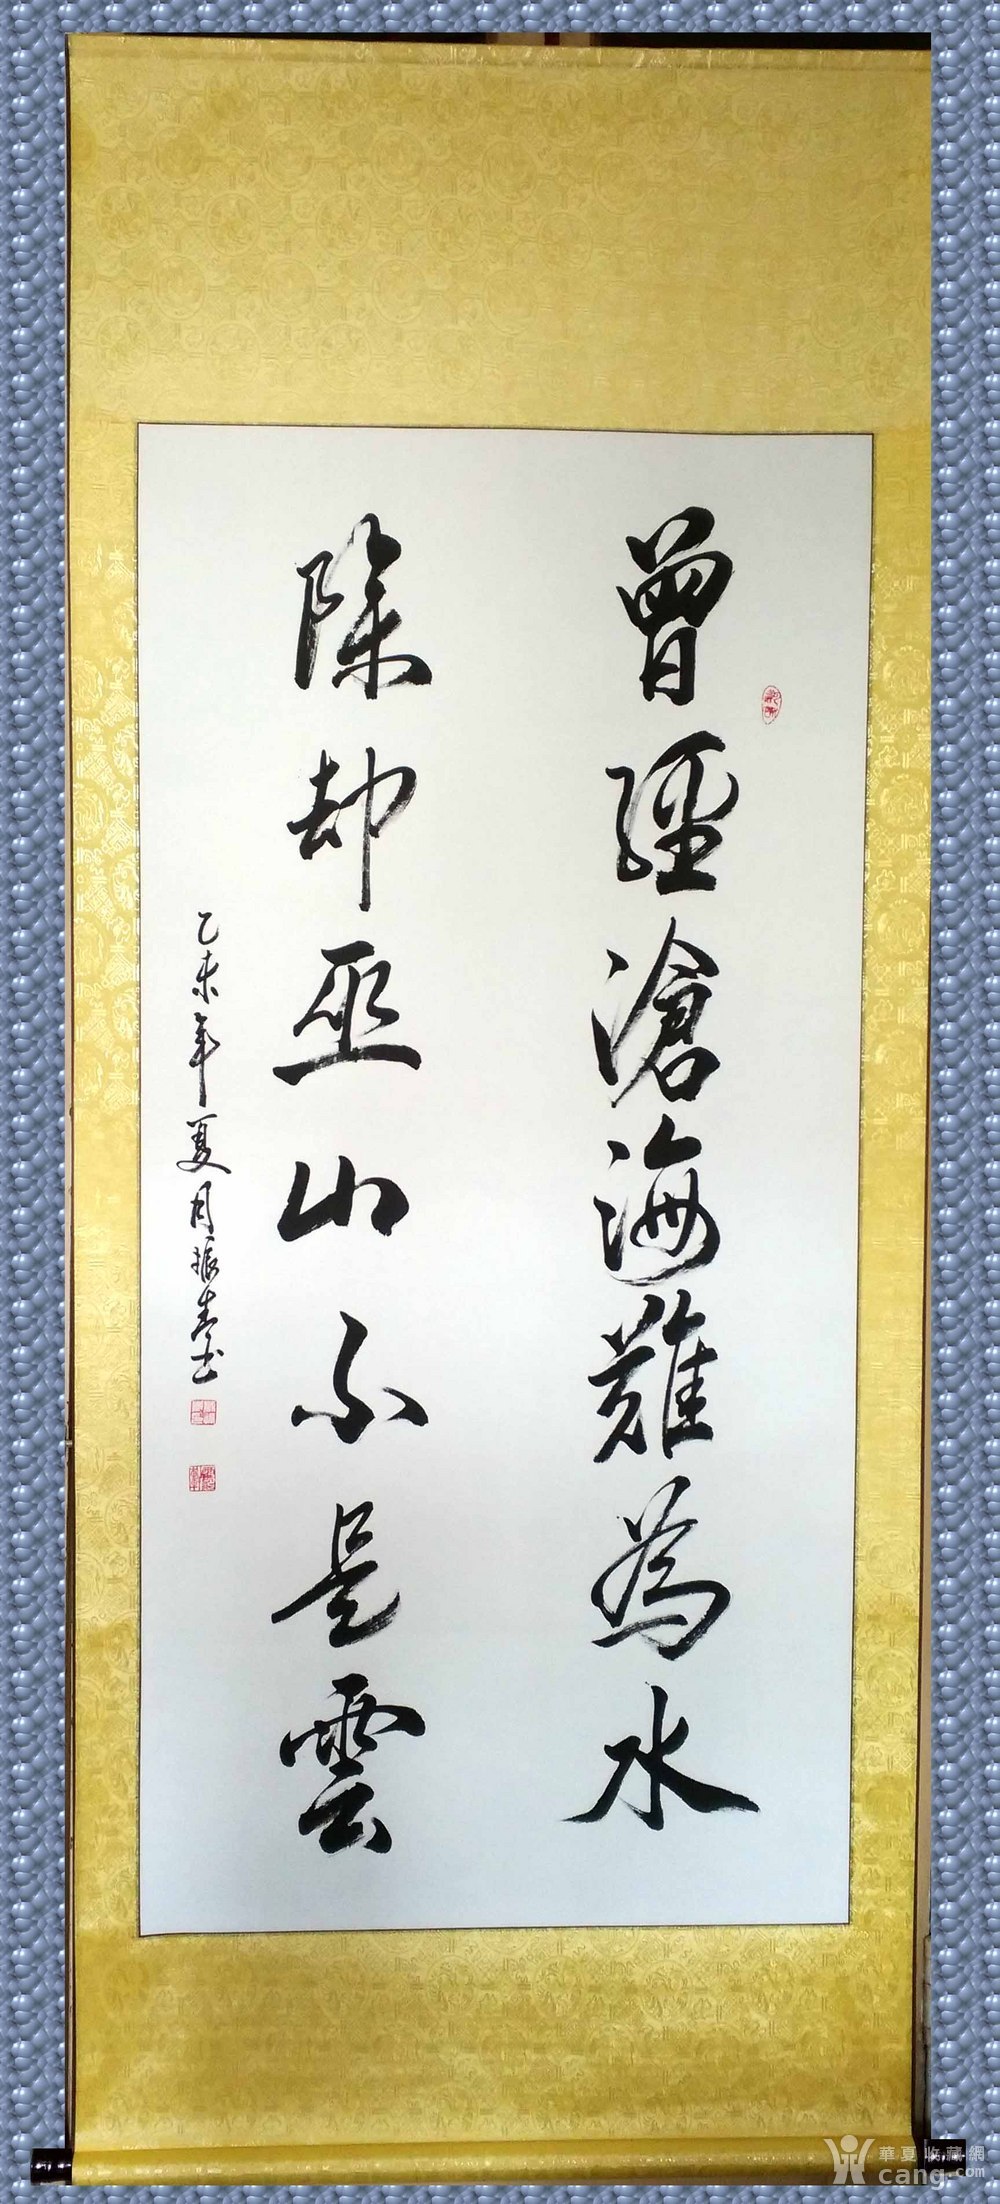 曾經滄海難為水
除却巫山不是雲
乙未年夏月振春书
華夏收藏網
cang.com